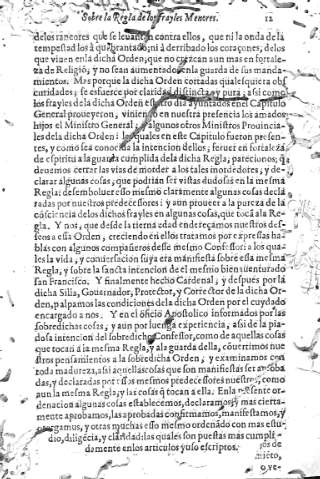 Sobre la Regla de los frayles Menores. 12
de los rancores que se leuantan contra ellos, que ni la onda de la
tempestad los à quebrantado, ni à derribado los coraçones, delos
que viuen enla dicha Orden, que no crezcan aun mas en fortale-
za de Religiõ, y no sean aumentados en la guarda de sus manda-
mientos. Mas porque la dicha Orden cortadas qualesquiera obs
curidades; se esfuerce por claridad distincta y pura; assi como
los frayles dela dicha Orden ayuntados en el Capitulo
General proueyeron, viniendo en nuestra presencia los amados
hijos el Ministro General; y algunos otros Ministros Prouincia-
les dela dicha Orden; los quales en este Capitulo fueron presen-
tes, y como sea conocida la intencion dellos; seruer en fortaleza
de espiritu a la guarda cumplida dela dicha Regla; parecionos; q̃
deuemos cerrar las vias de morder a los tales mordedores, y de-
clarar algunas cosas, que podrian ser vistas dudosas en la mesma
Regla; desemboluer esso mesmo claramente algunas cosas decla
radas por nuestros predecessores; y aun proueer a la pureza de la
cõsciencia delos dichos frayles en algunas cosas, que tocã ala Re-
gla. Y nos, que desde la tierna edad endereçamos nuestros des-
seos a essa Orden, creciendo en ellos tratamos por expressas ha-
blas con algunos compañeros desse mesmo Confessor; a los qua-
les la vida, y conuersacion suya era manifiesta sobre essa mesma
Regla, y sobre la sancta intencion de el mesmo bienauenturado
san Francisco. Y finalmente hecho Cardenal; y despues por la
dicha Silla, Gouernador, Protector, y Corrector de la dicha Or-
den, palpamos las condiciones dela dicha Orden por el cuydado
encargado a nos. Y en el oficio Apostolico informados por las
sobredichas cosas; y aun por luenga experiencia, assi de la pia-
dosa intencion del sobredicho Confessor, como de aquellas cosas
que tocan a la mesma Regla, y ala guarda della; couertimos nue
stros pensamientos a la sobredicha Orden; y examinamos con
toda madureza, assi aquellas cosas que son manifiestas ser
das, y declaradas por essos mesmos predecessores nuestros, como
aun la mesma Regla, y las cosas q̃ tocan a ella. En la presente or-
denacion algunas cosas establecemos, declaramos; y mas cierta-
mente aprobamos, las aprobadas confirmamos, manifestamos, y
otorgamos, y otras muchas esso mesmo ordenado con mas estu-
dio, diligẽcia, y claridad; las quales son puestas mas cumpli-
damente en los articulos yuso escriptos.